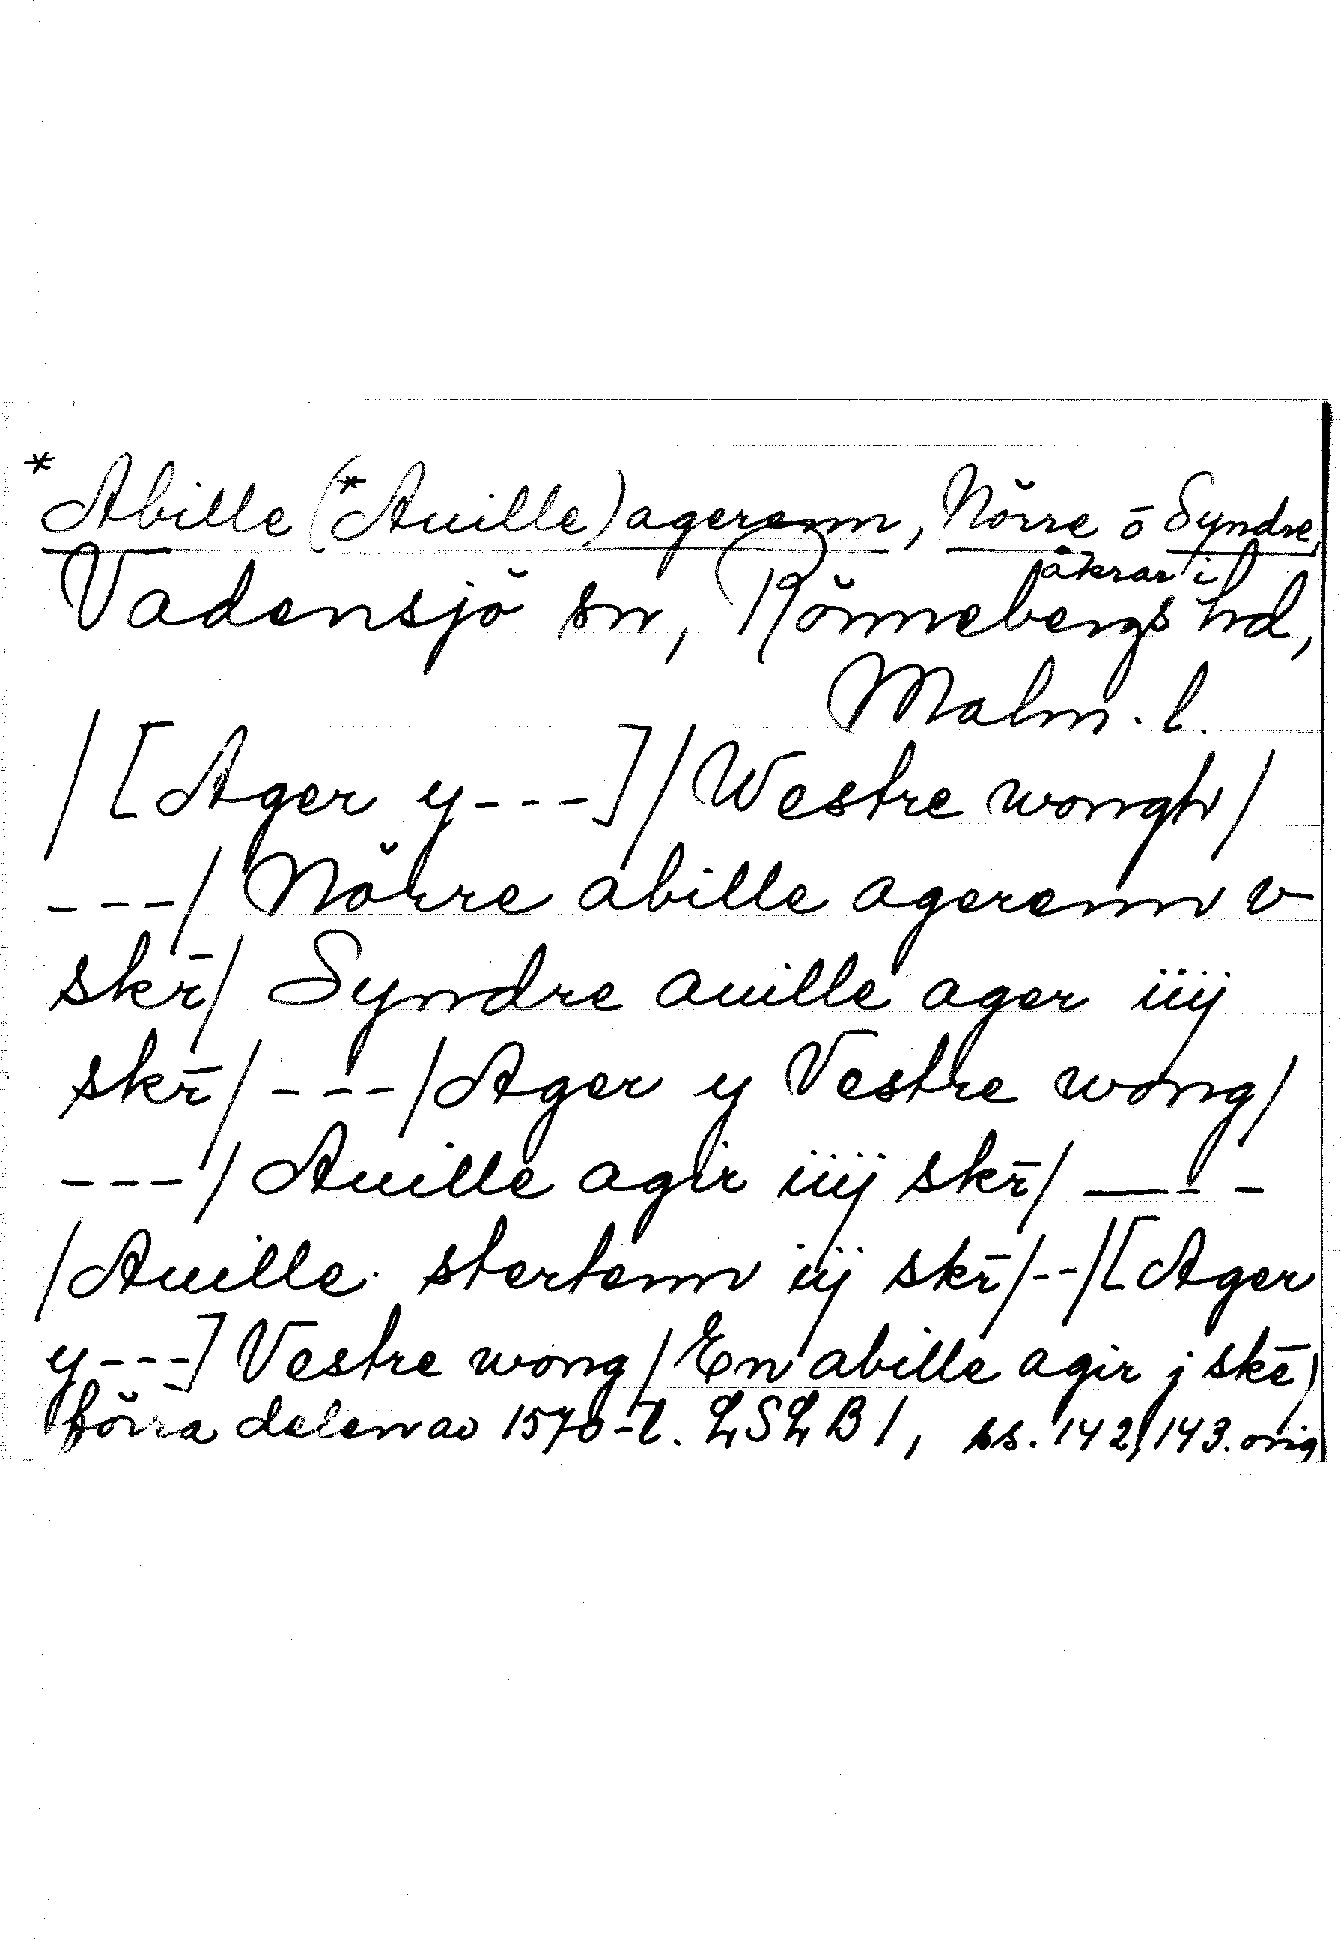 *Abille (*Auille) agerenn, Nörre o Syndre,
åkrar i
Vadensjö sn, Rönnebergs hd,
Malm. l.
/ [Ager y---] / Westre wongh /
---/ Nörre abille agerenn v
skr̄/ Syndre auille ager iiij
skr̄/ ---/ Ager y Vestre wong/
---/ Auille agir iiij skr̄/ ---
/Auille stertenn iij skr̄/--/[Ager
y---] Vestre wong / En abille agir j skē/
förra delen av 1570-t. LSLB 1, ss. 142, 143. orig